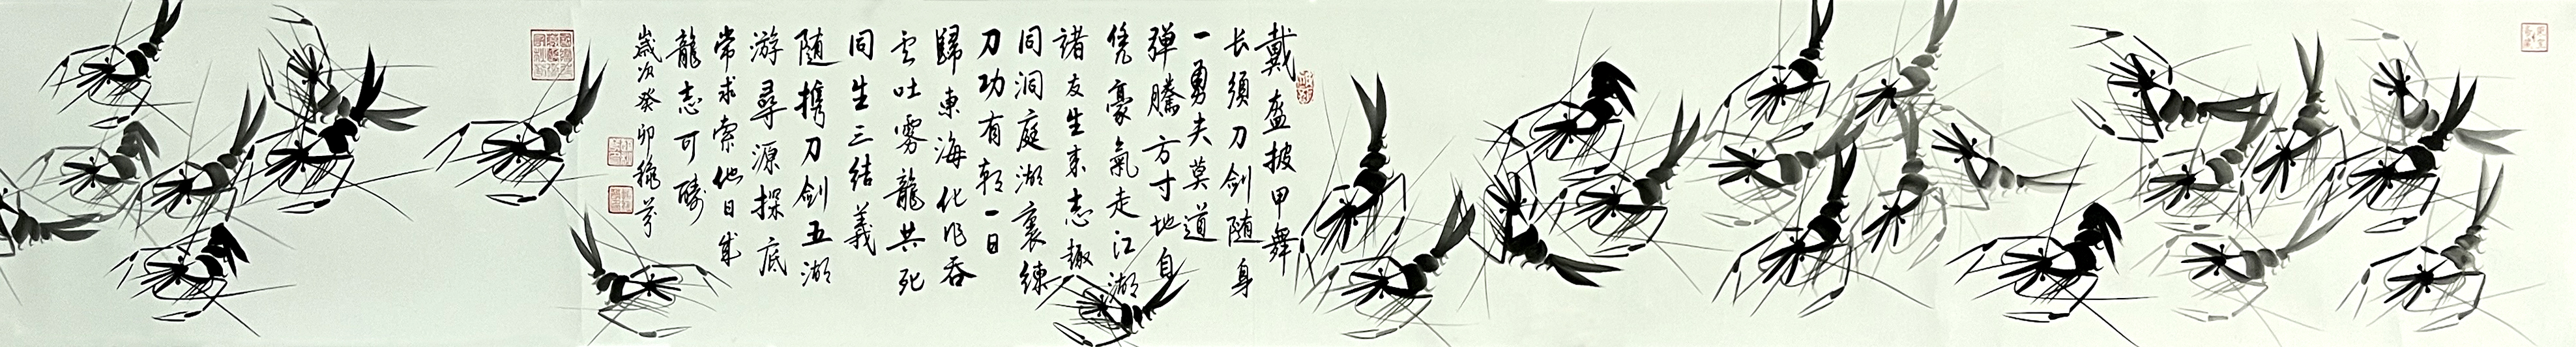 戴盔披甲舞
长须刀剑随身
一勇夫莫道
弹腾方寸地自
凭豪氣走江湖
諸友生来志趣
同洞庭湖裏練
刀功有朝一日
歸東海化作吞
云吐雾龍共死
同生三结義
随携刀剑五湖
游尋源探底
常求索他日成
龍志可酬
歳次癸卯穐芬